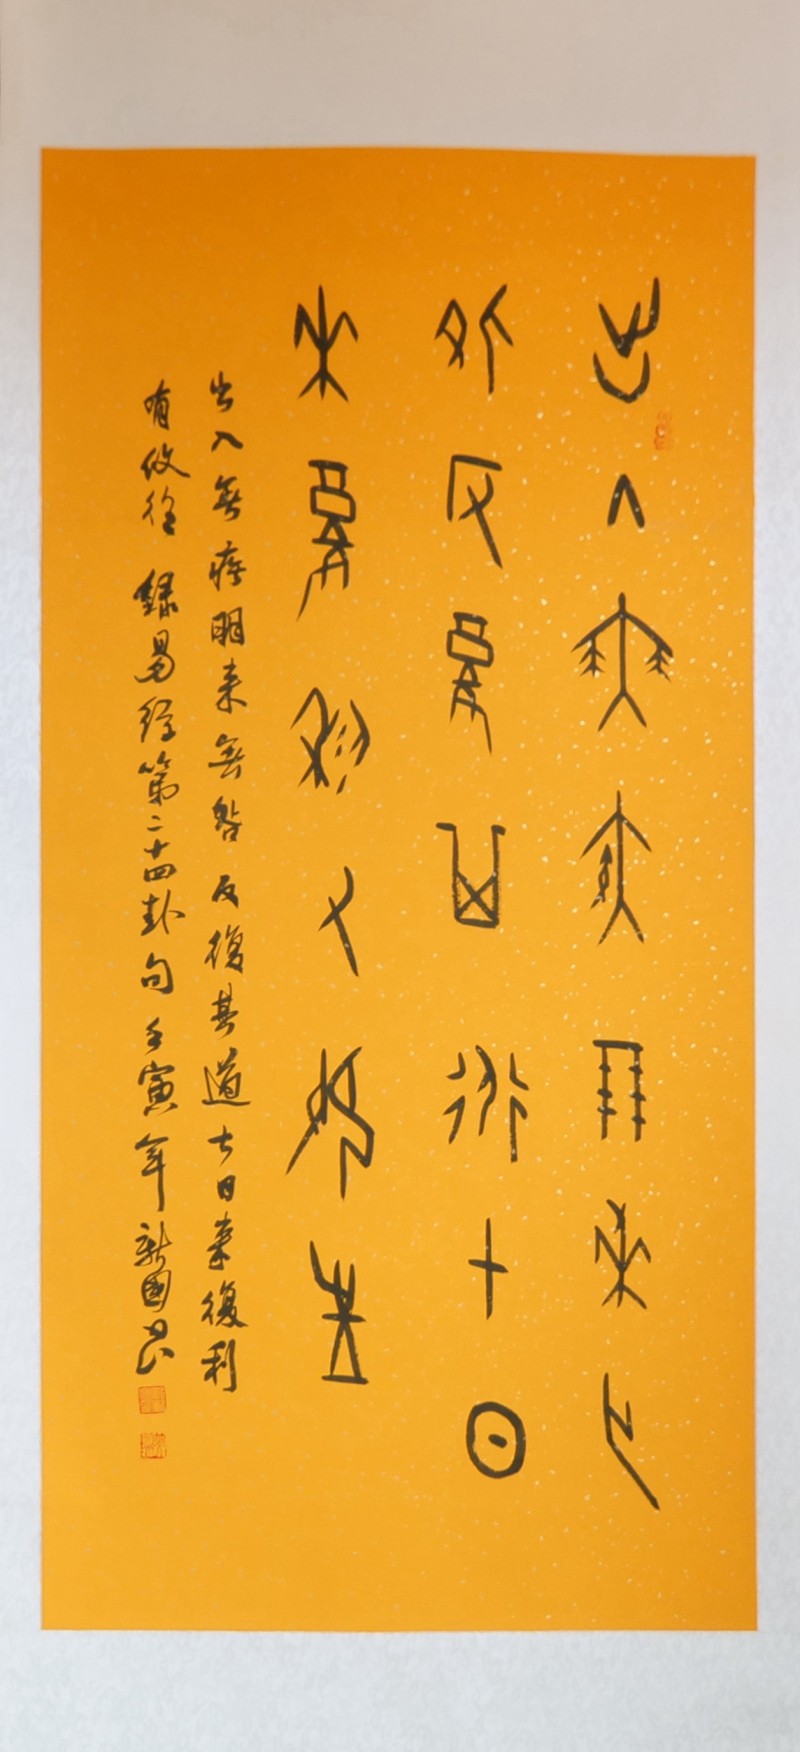 出入無疾朋來亡
咎反复其行七日
來复利又攸往
出入無疾朋来無咎反復其道七日来復利
有攸往 錄易經第二十四卦句 壬寅年 新國